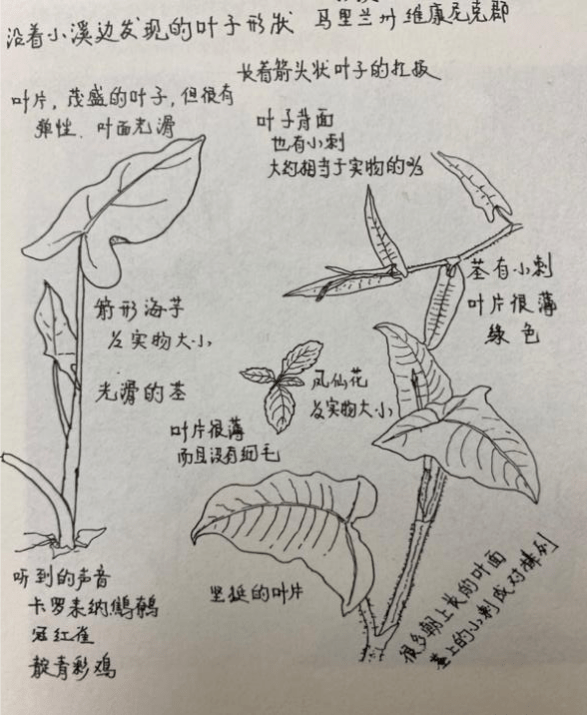 沿着小溪边发现的叶子形状 马里兰州维康尼克郡
长着箭头状叶子的扛板
叶片，茂盛的叶子，但很有
弹性，叶面光滑
叶子背面
也有小刺
大约相当于实物的2/3
茎有小刺
叶片很薄
绿色
箭形海芋
实物大小
光滑的茎
凤仙花
实物大小
叶片很薄
而且没有细毛
坚挺的叶片
很多朝上长的叶面
茎上的小刺成对排列
听到的声音
卡罗莱纳鹪鹩
冠红雀
靛青彩鹀